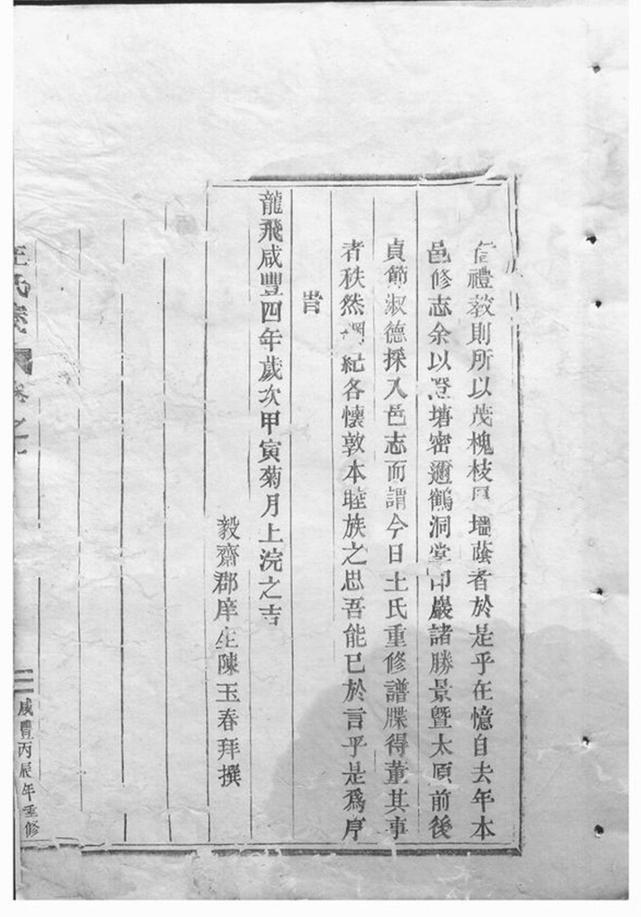 信禮教則所以茂槐枝厚墙蔭者於是乎在憶自去年本
邑修志余以澄塘密邇鶴洞堂印巖諸勝景暨太原前後
貞節淑德採入邑志而謂今日王氏重修譜牒得董其事
者秩然綱紀各懷敦本睦族之思吾能已於言乎是爲序
旹
龍飛咸豐四年歲次甲寅菊月上浣之吉
毅齋郡庠生陳玉春拜撰
王氏家國卷之
咸豐丙辰年重修